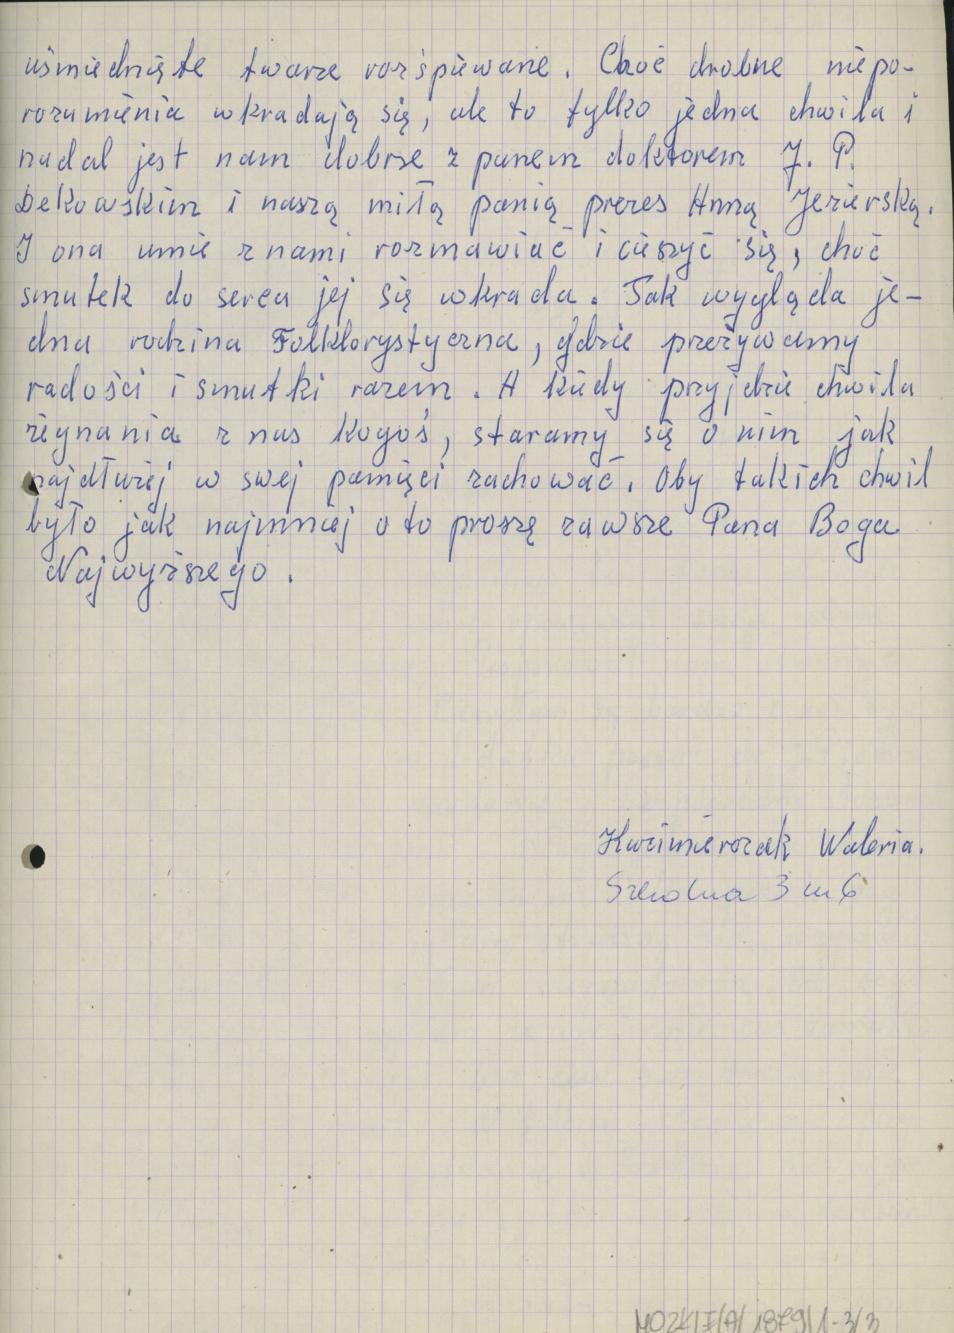 uśmiechnięte twarze rozśpiewane. Choć drobne niepo-
rozumienia wkradają się, ale to tylko jedna chwila i
nadal jest nam dobrze z panem doktorem J. P.
Dekowskim i naszą miłą panią prezes Anną Jezierską.
I ona umie z nami rozmawiać i cieszyć się, choć
smutek do serca jej się wkrada. Tak wygląda je-
dna rodzina Folklorystyczna, gdzie przeżywamy
radości i smutki razem. A kiedy przyjdzie chwila
żegnania z nas kogoś, staramy się o nim jak
najdłużej w swej pamięci zachować. Oby takich chwil
było jak najmniej o to proszę zawsze Pana Boga
Najwyższego.
Kazimierczak Waleria.
Szkolna 3 m 6
MOZK/E/A/1879/1-3/3